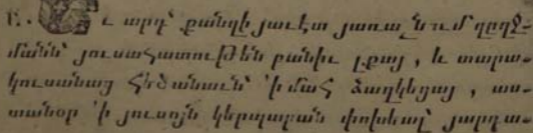 Ի. Եւ արդ՝ քանզի յաւէտ յառաջնում զըղջ֊
մանն՝ յուսահատութեն բանիւ լքայ, և տարա֊
կուսանաց հեծանաւն՝ ՚ի մահ ձաղկեցայ, աս֊
տանօր ՚ի յուսոյն կերպարան փոխեալ՝ յարդա֊